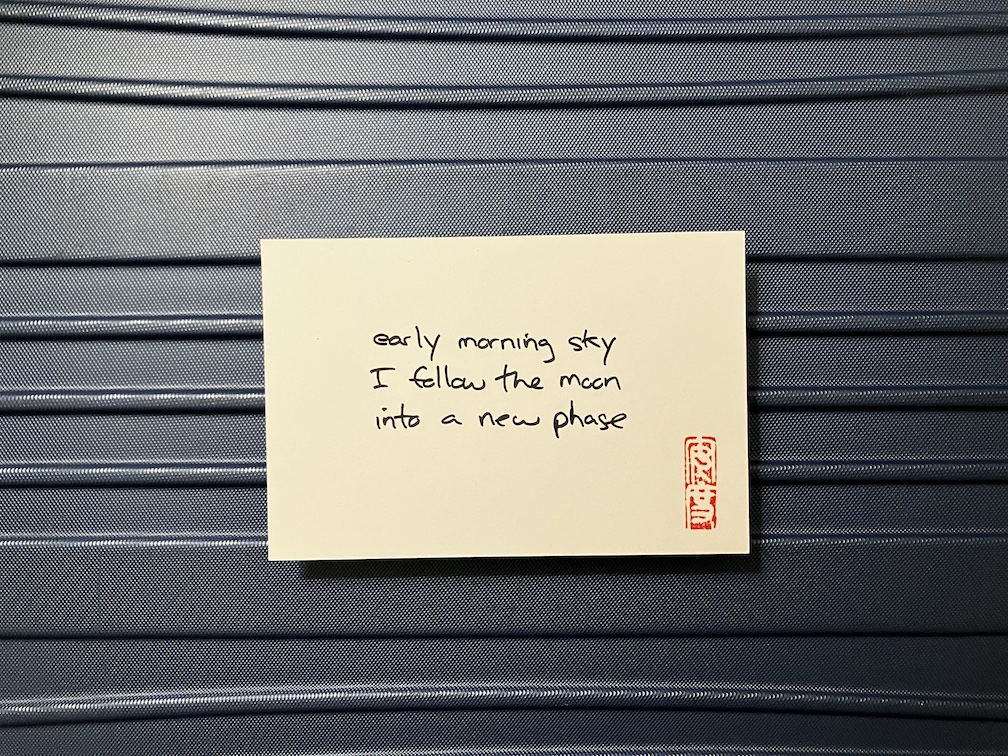 early morning sky
I follow the moon
into a new phase